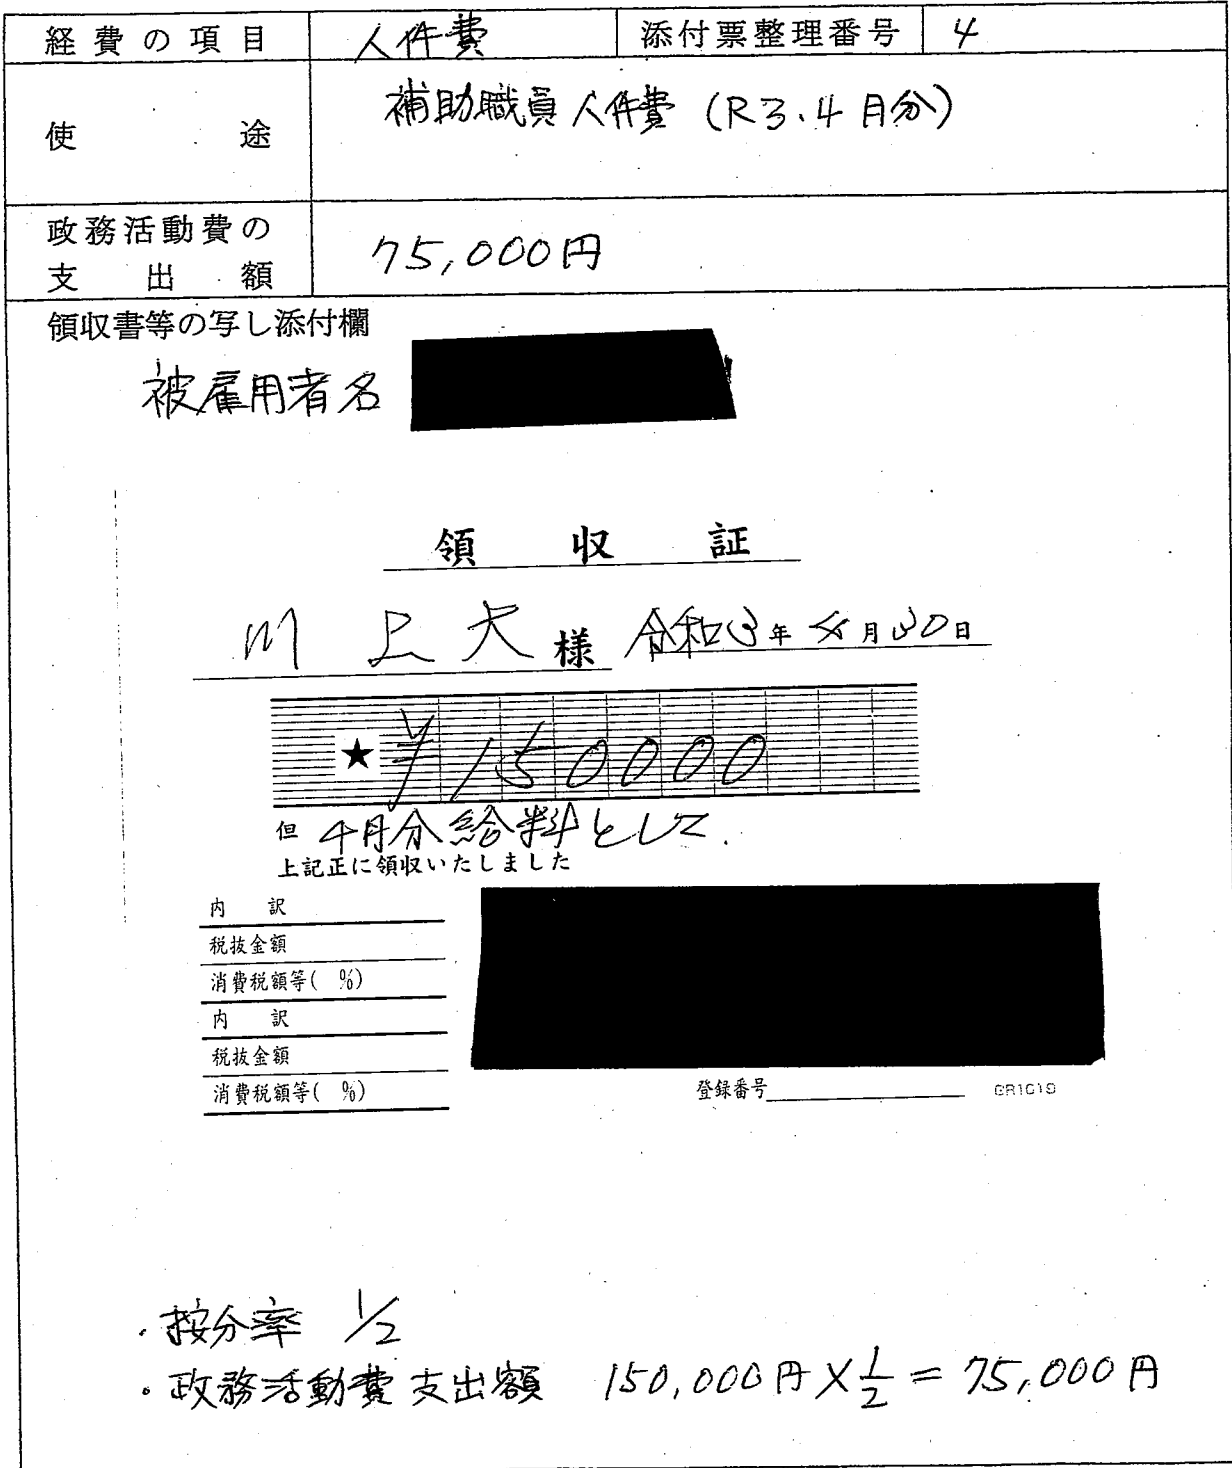 経費の項目 人件費 添付票整理番号 4
使途 補助職員人件費 (R3.4月分)
政務活動費の
支出額 75,000円
領収書等の写し添付欄
被雇用者名
領収証
川上大様 令和3年4月30日
★ ¥150000
但 4月分給料として.
上記正に領収いたしました
内訳
税抜金額
消費税額等( %)
内訳
税抜金額
消費税額等( %)
登録番号 GR1019
・按分率 1/2
・政務活動費支出額 150,000円×1/2=75,000円